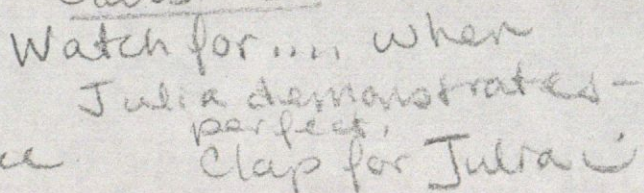 Watch for.... when
Julia demonstrates-
perfect,
Clap for Julia